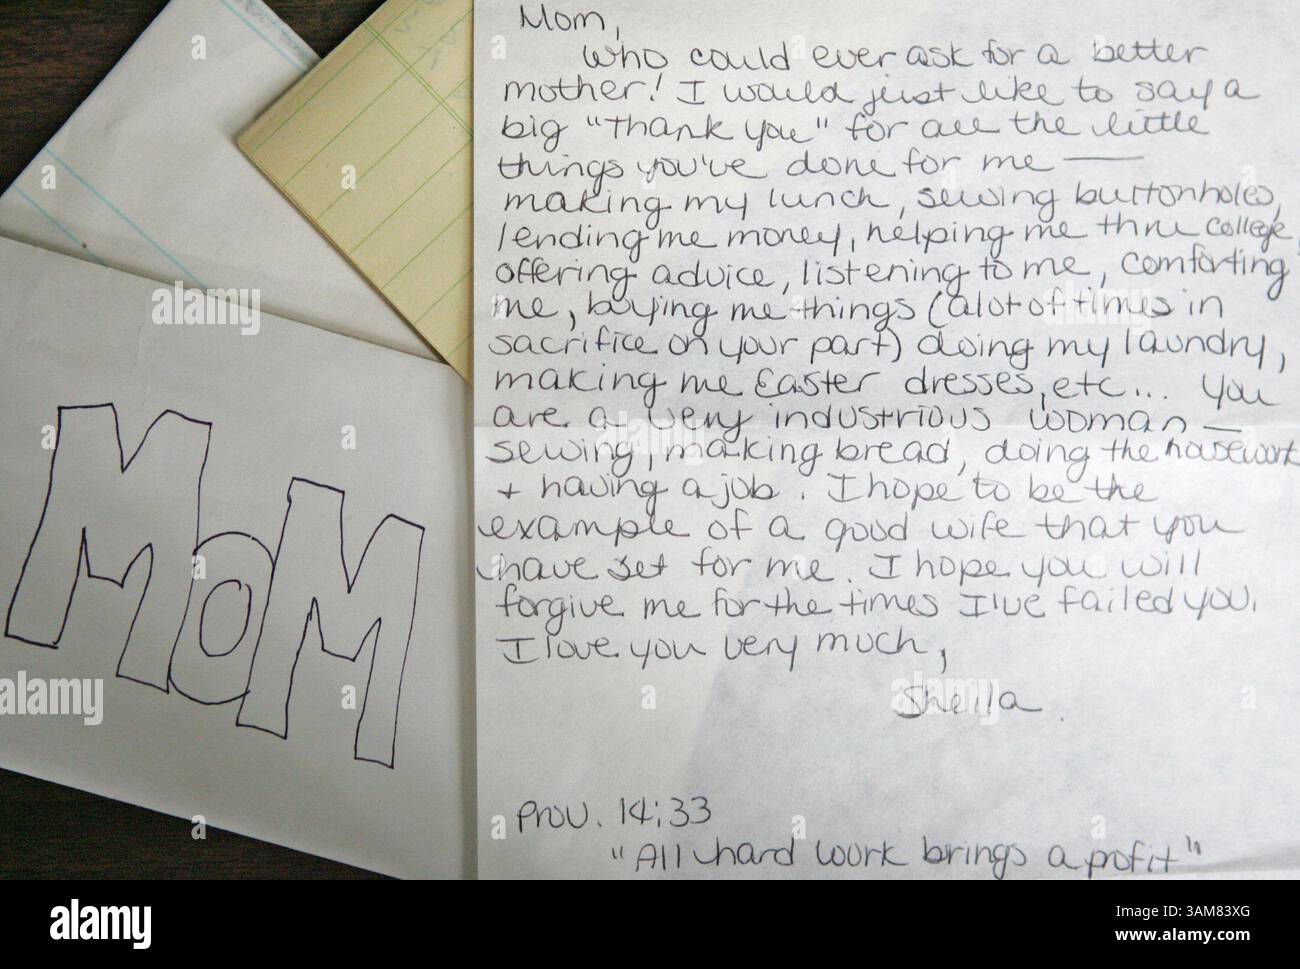 Mom,
Who could ever ask for a better
mother! I would just like to say a
big "Thank you" for all the little
things you've done for me —
making my lunch, sewing buttonholes,
lending me money, helping me thru college,
offering advice, listening to me, comforting
me, buying me things (alot of times in
sacrifice on your part) doing my laundry,
making me Easter dresses, etc... You
are a very industrious woman —
sewing, making bread, doing the housework
+ having a job. I hope to be the
example of a good wife that you
have set for me. I hope you will
forgive me for the times I've failed you.
I love you very much,
Sheila
Prov. 14:33
"All hard work brings a profit"
MOM
alamy
Image ID: 3AM83XG
www.alamy.com